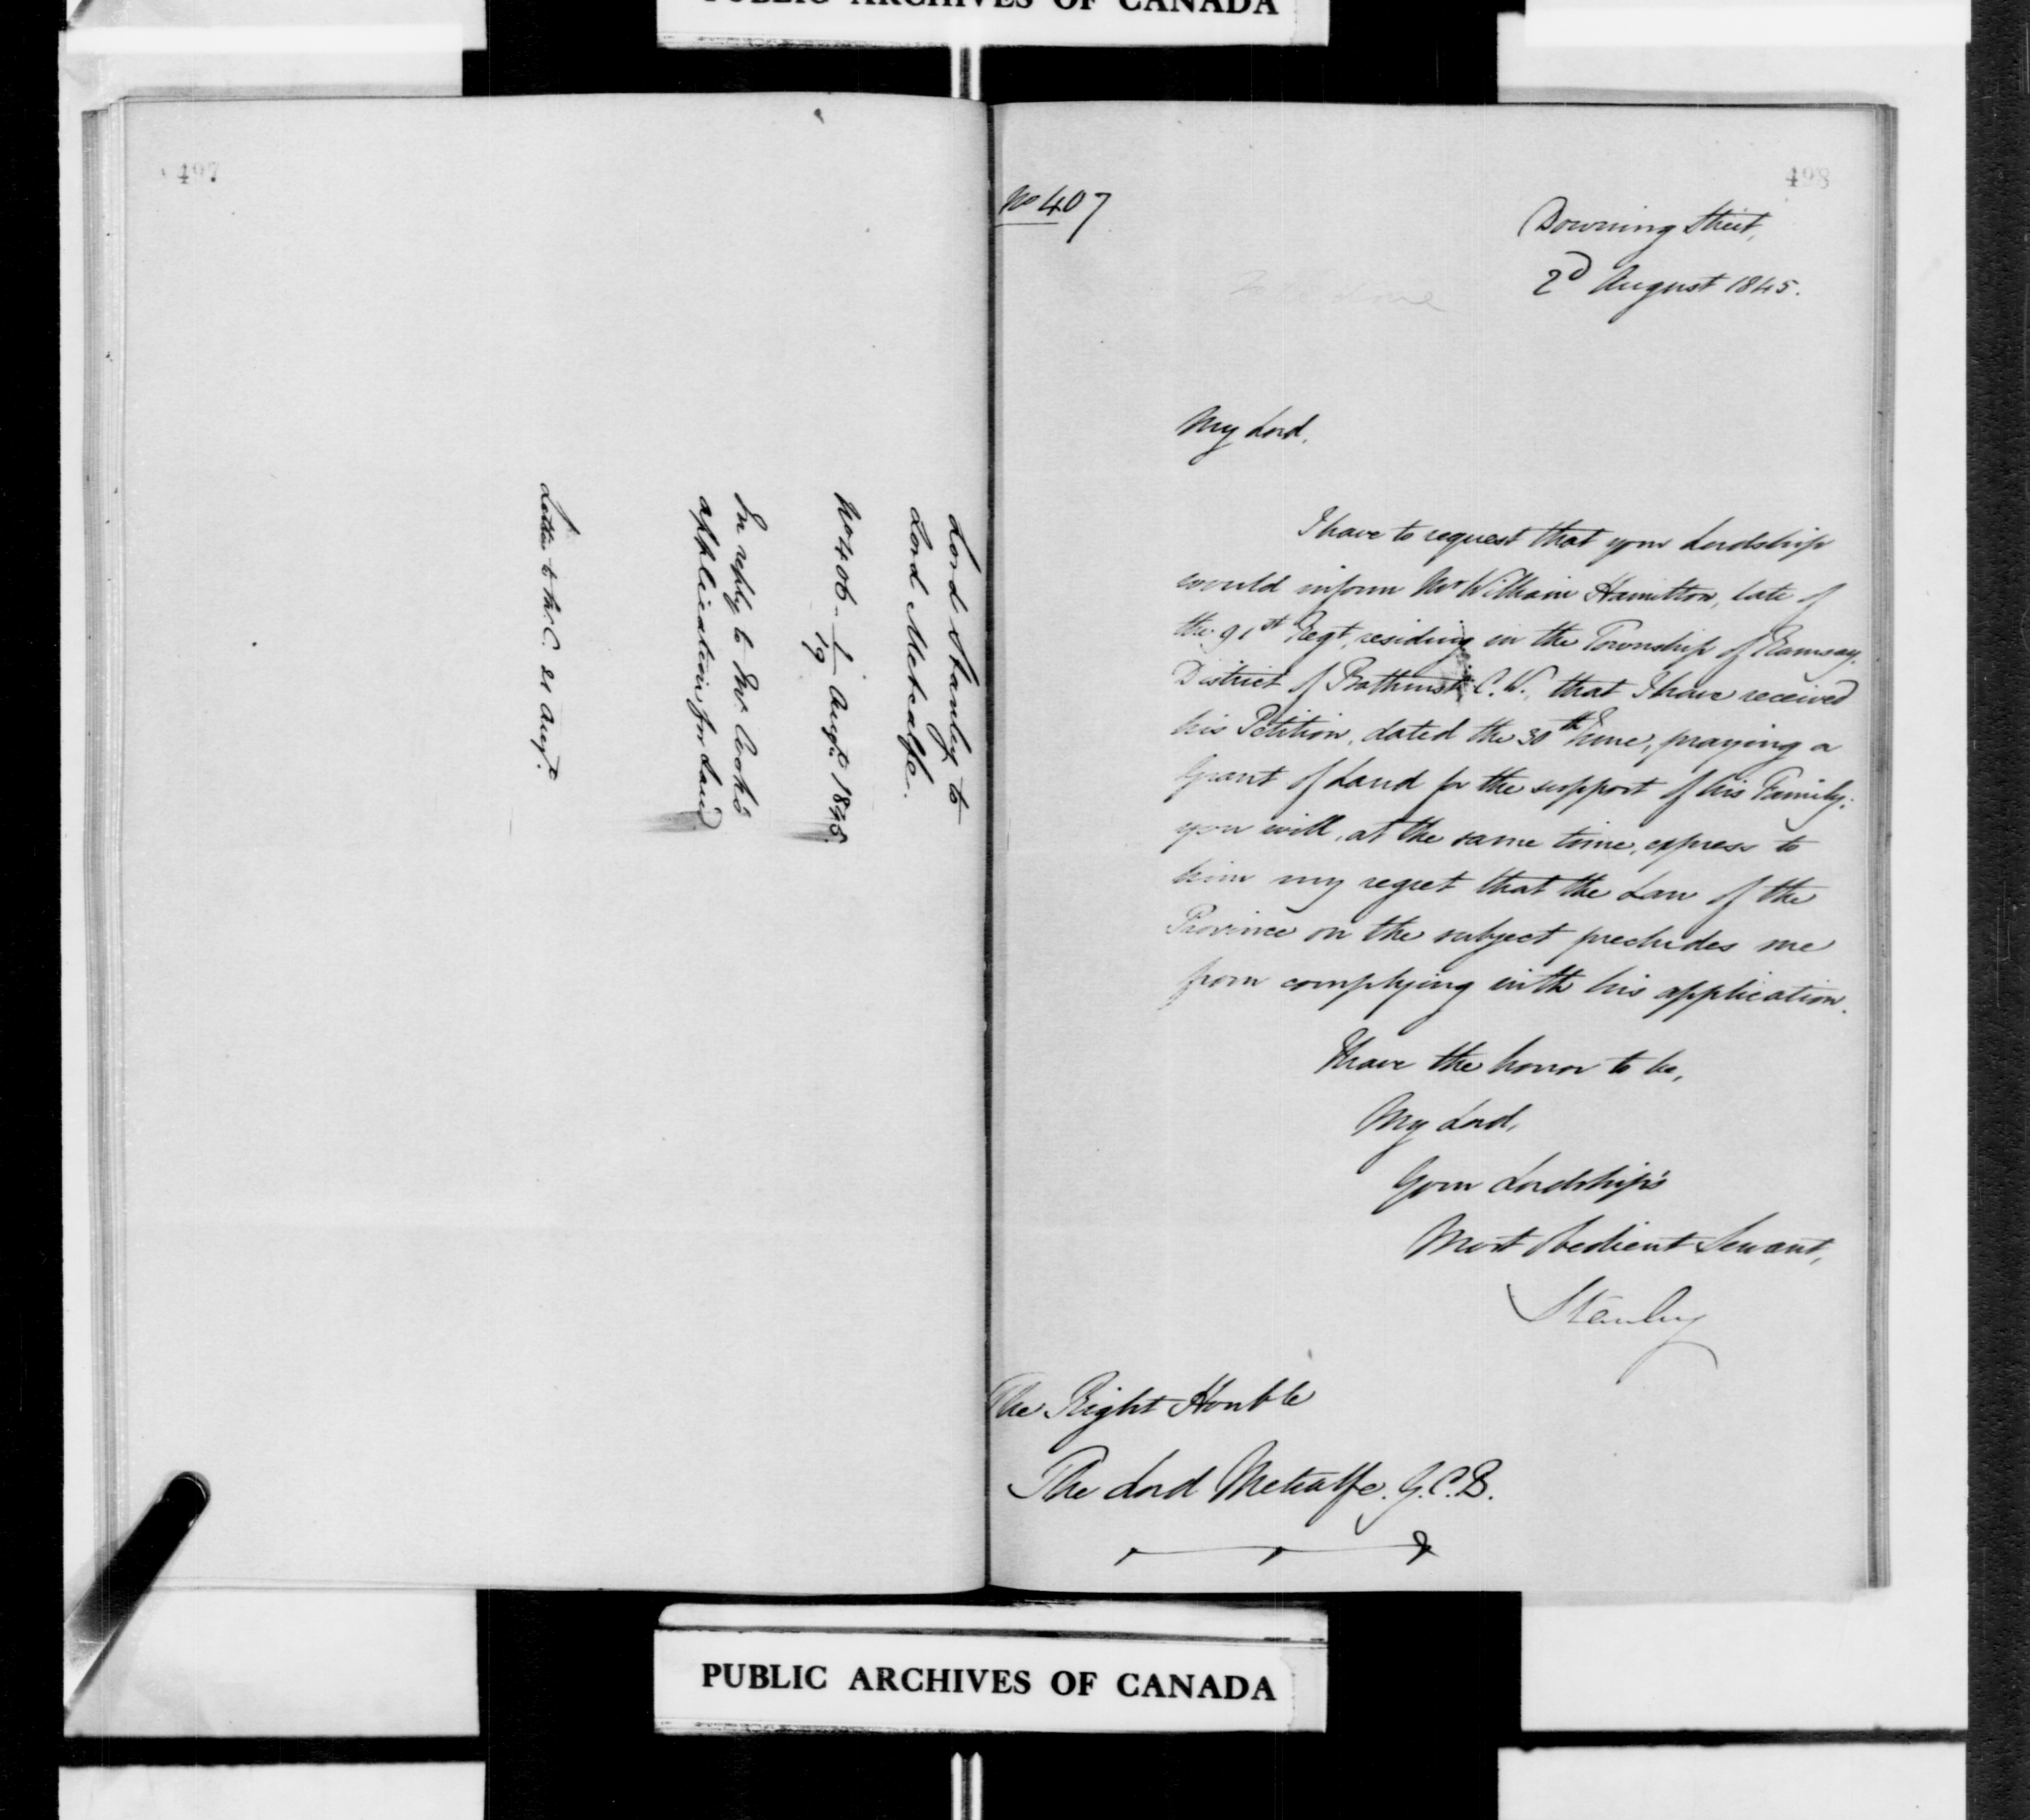 PUBLIC ARCHIVES OF CANADA
497
Lord Stanley to
Lord Metcalfe.
No 406 - 1/19 Augt. 1845.
In reply to Mr. Cook's
application for Land
Letter to Mr. C. 21 Augt.
498
No 407
Downing Street,
2d August 1845.
My Lord,
I have to request that your Lordship
would inform Mr William Hamilton, late of
the 91st Regt, residing in the Township of Ramsay,
District of Bathurst C.W., that I have received
his Petition, dated the 30th June, praying a
Grant of Land for the support of his Family:
you will, at the same time, express to
him my regret that the Law of the
Province on the subject precludes me
from complying with his application.
I have the honor to be,
My Lord,
Your Lordship's
Most Obedient Servant,
Stanley
The Right Honble
The Lord Metcalfe. G.C.B.
PUBLIC ARCHIVES OF CANADA